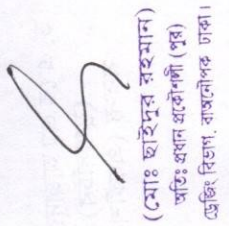 (মোঃ ছাইদুর রহমান)
অতিঃ প্রধান প্রকৌশলী (পুর)
ড্রেজিং বিভাগ, বাঅনৌপক ঢাকা।